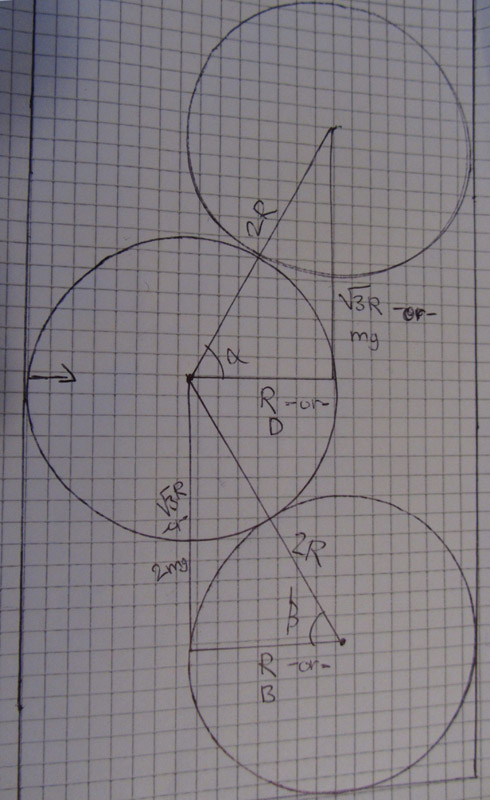 2R
√3R -or-
mg
α
R -or-
D
√3R
or
2mg
2R
β
R -or-
B